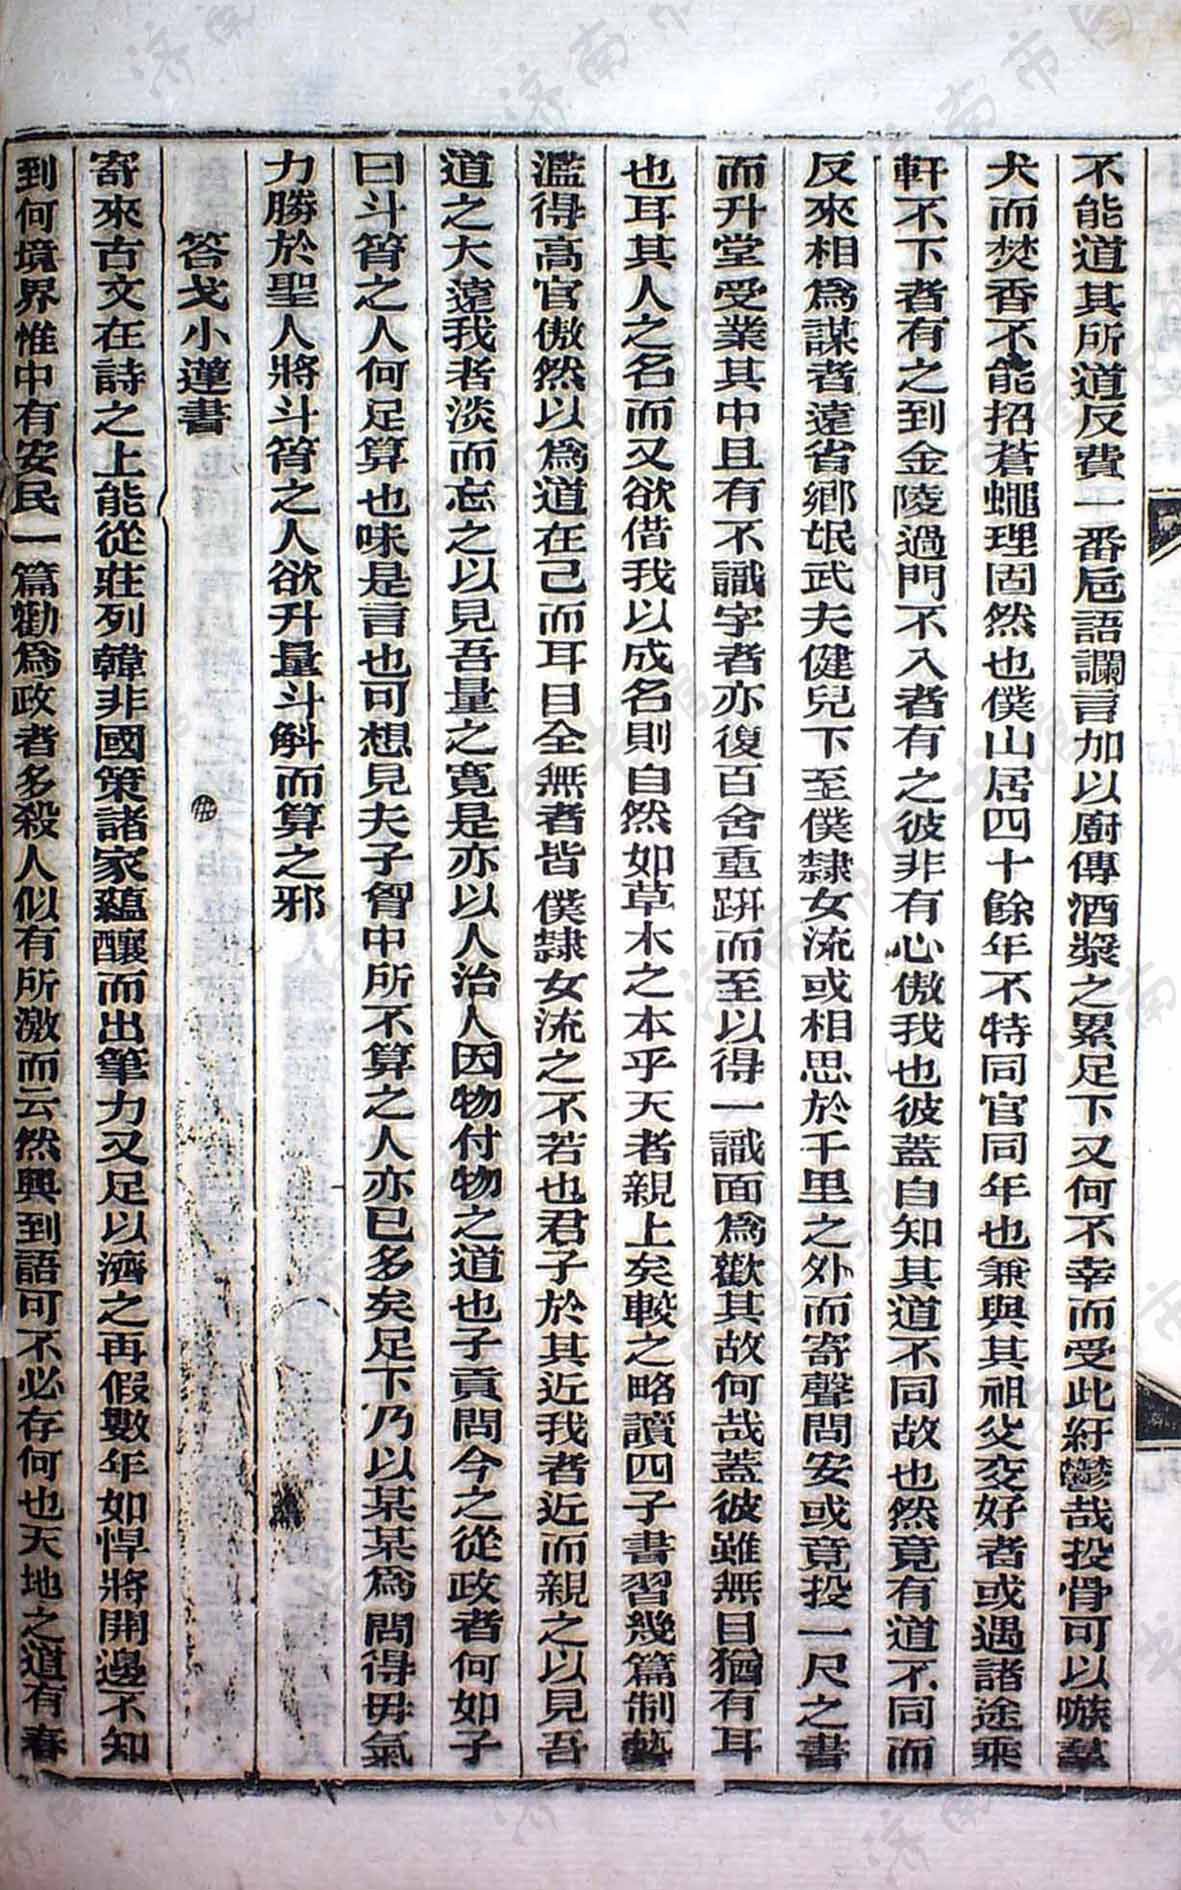 不能道其所道反費一番巵語讕言加以廚傳酒漿之累足下又何不幸而受此紆鬱哉投骨可以嗾羣
犬而焚香不能招蒼蠅理固然也僕山居四十餘年不特同官同年也兼與其祖父交好者或遇諸途乘
軒不下者有之到金陵過門不入者有之彼非有心傲我也彼蓋自知其道不同故也然竟有道不同而
反來相爲謀者遠省鄉氓武夫健兒下至僕隸女流或相思於千里之外而寄聲問安或竟投一尺之書
而升堂受業其中且有不識字者亦復百舍重趼而至以得一識面爲歡其故何哉蓋彼雖無目猶有耳
也耳其人之名而又欲借我以成名則自然如草木之本乎天者親上矣較之略讀四子書習幾篇制藝
濫得高官傲然以爲道在己而耳目全無者皆僕隸女流之不若也君子於其近我者近而親之以見吾
道之大遠我者淡而忘之以見吾量之寬是亦以人治人因物付物之道也子貢問今之從政者何如子
曰斗筲之人何足算也味是言也可想見夫子胷中所不算之人亦已多矣足下乃以某某爲問得毋氣
力勝於聖人將斗筲之人欲升量斗斛而算之邪
答戈小蓮書
寄來古文在詩之上能從莊列韓非國策諸家蘊釀而出筆力又足以濟之再假數年如悍將開邊不知
到何境界惟中有安民一篇勸爲政者多殺人似有所激而云然興到語可不必存何也天地之道有春
濟南市图书馆